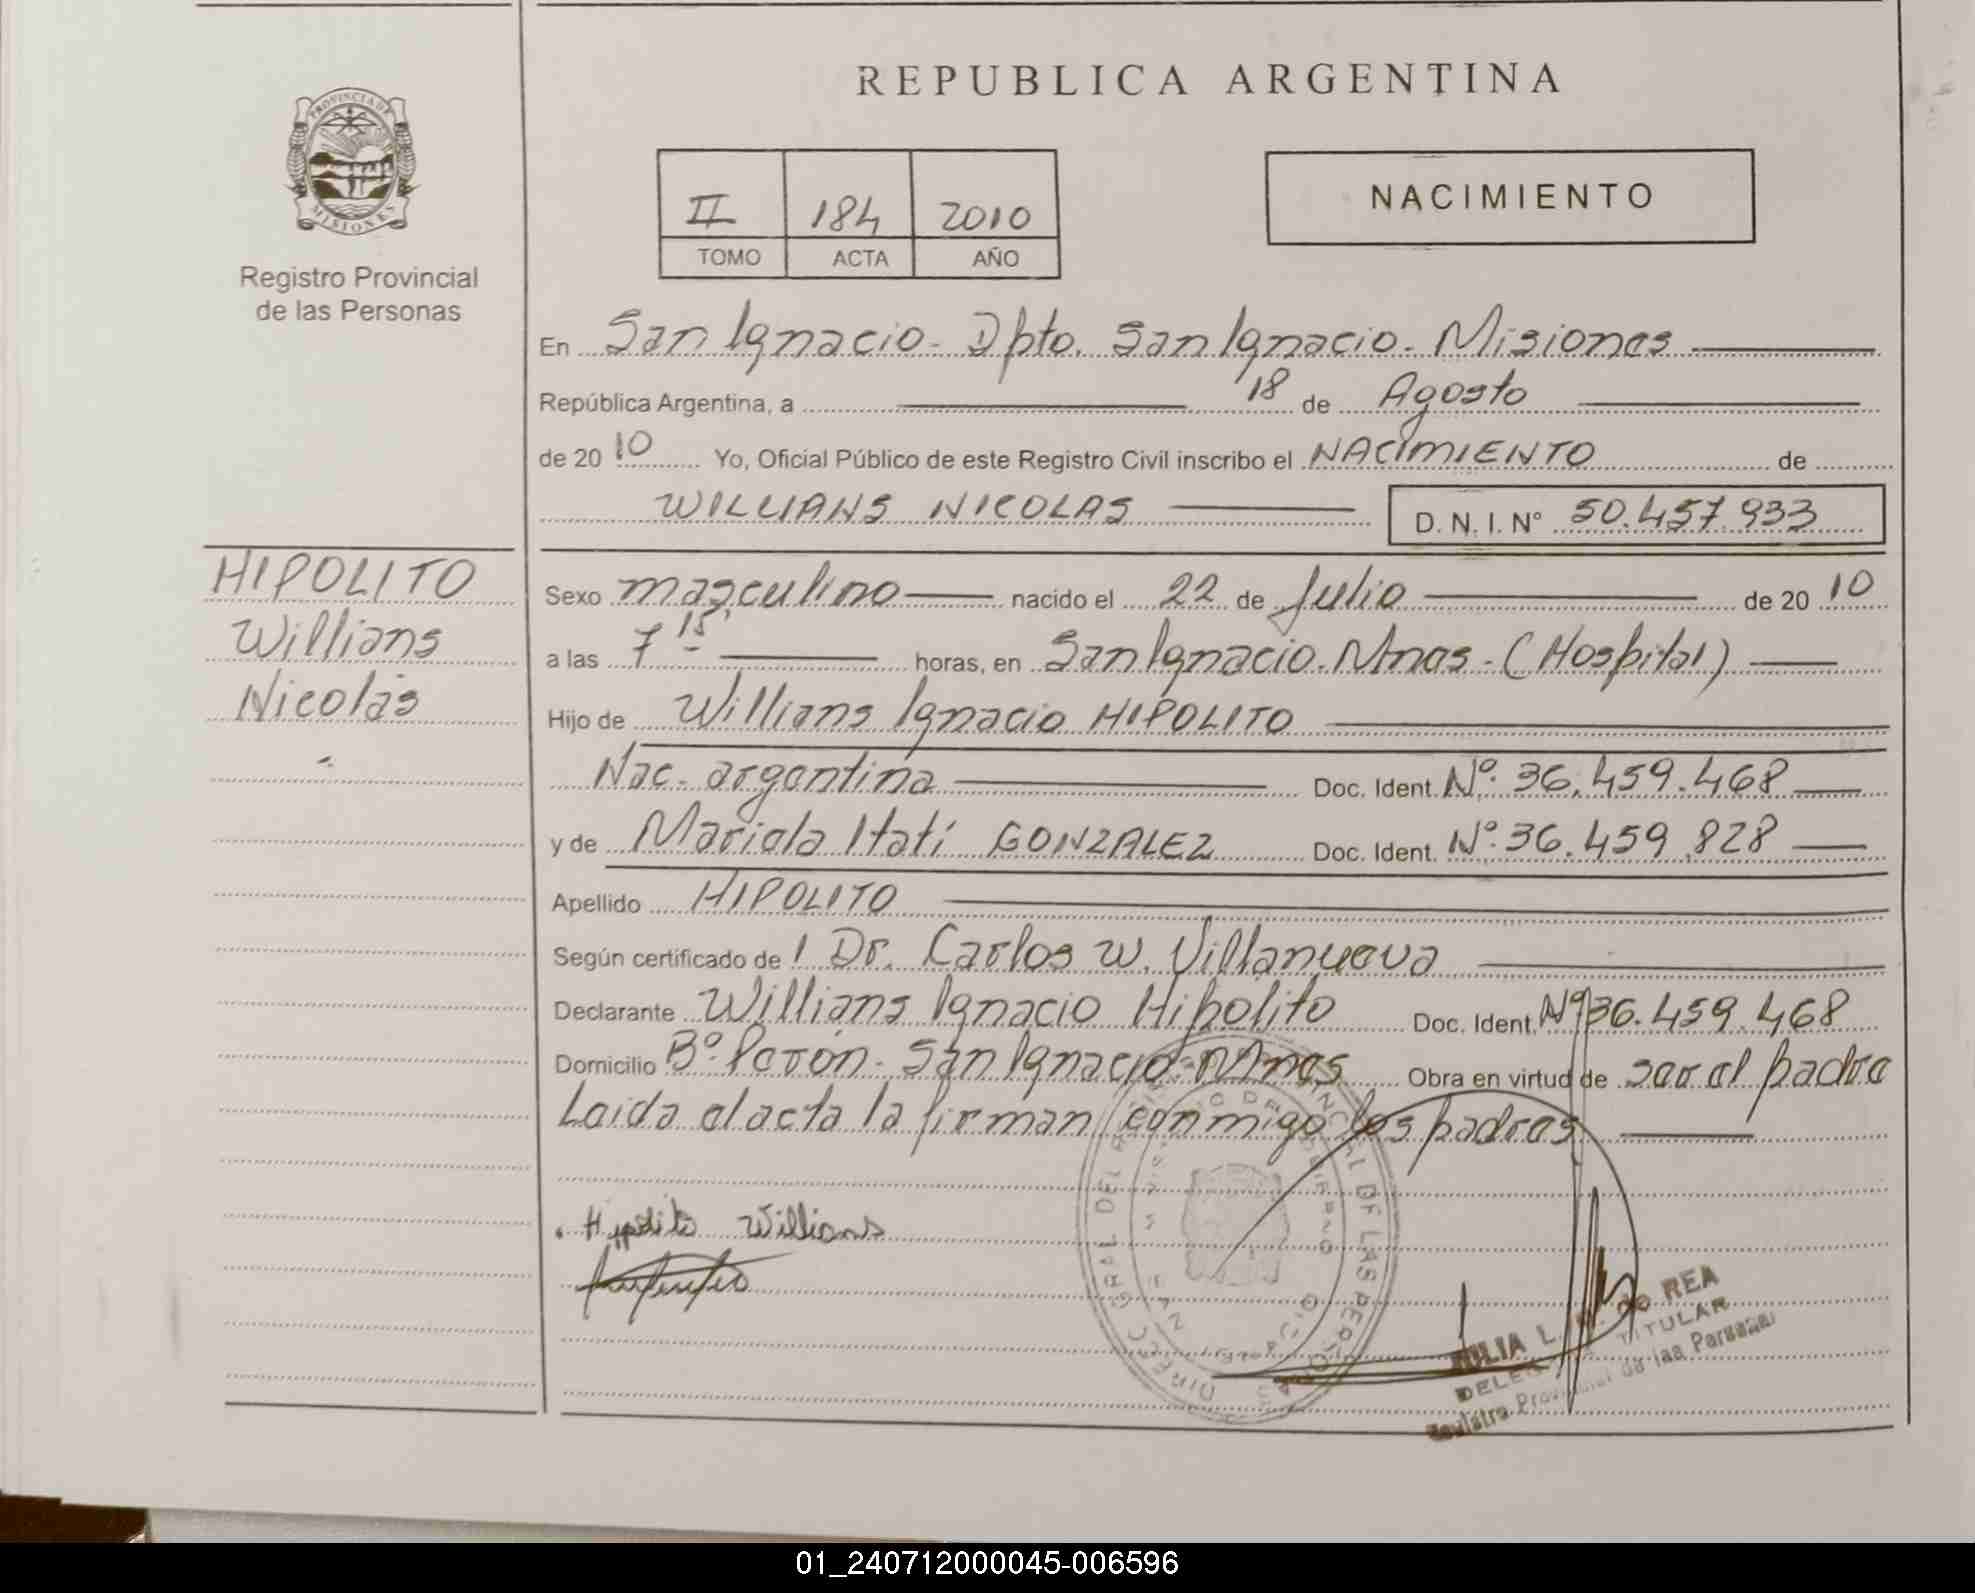 PROVINCIA DE
MISIONES
Registro Provincial
de las Personas
REPUBLICA ARGENTINA
II 184 2010
TOMO ACTA AÑO
NACIMIENTO
En San Ignacio - Dpto. San Ignacio - Misiones
República Argentina, a 18 de Agosto
de 2010 Yo, Oficial Público de este Registro Civil inscribo el NACIMIENTO de
WILLIANS NICOLAS D. N. I. Nº 50.457.933
HIPOLITO
Willians
Nicolás
Sexo masculino nacido el 22 de Julio de 2010
a las 7 15' horas, en San Ignacio. Mnes - (Hospital)
Hijo de Willians Ignacio HIPOLITO
Nac. argentina Doc. Ident. Nº: 36.459.468
y de Mariela Itatí GONZALEZ Doc. Ident. Nº: 36.459.828
Apellido HIPOLITO
Según certificado de l Dr. Carlos W. Villanueva
Declarante Willians Ignacio Hipólito Doc. Ident. Nº 36.459.468
Domicilio Bº. Perón - San Ignacio Mnes Obra en virtud de ser el padre
Leida el acta la firman conmigo los padres
Hypolito Willians
DIREC. GRAL DEL PROVINCIAL DE LAS PERSONAS
L. de REA
TITULAR
Registro Provincial de las Personas
01_240712000045-006596